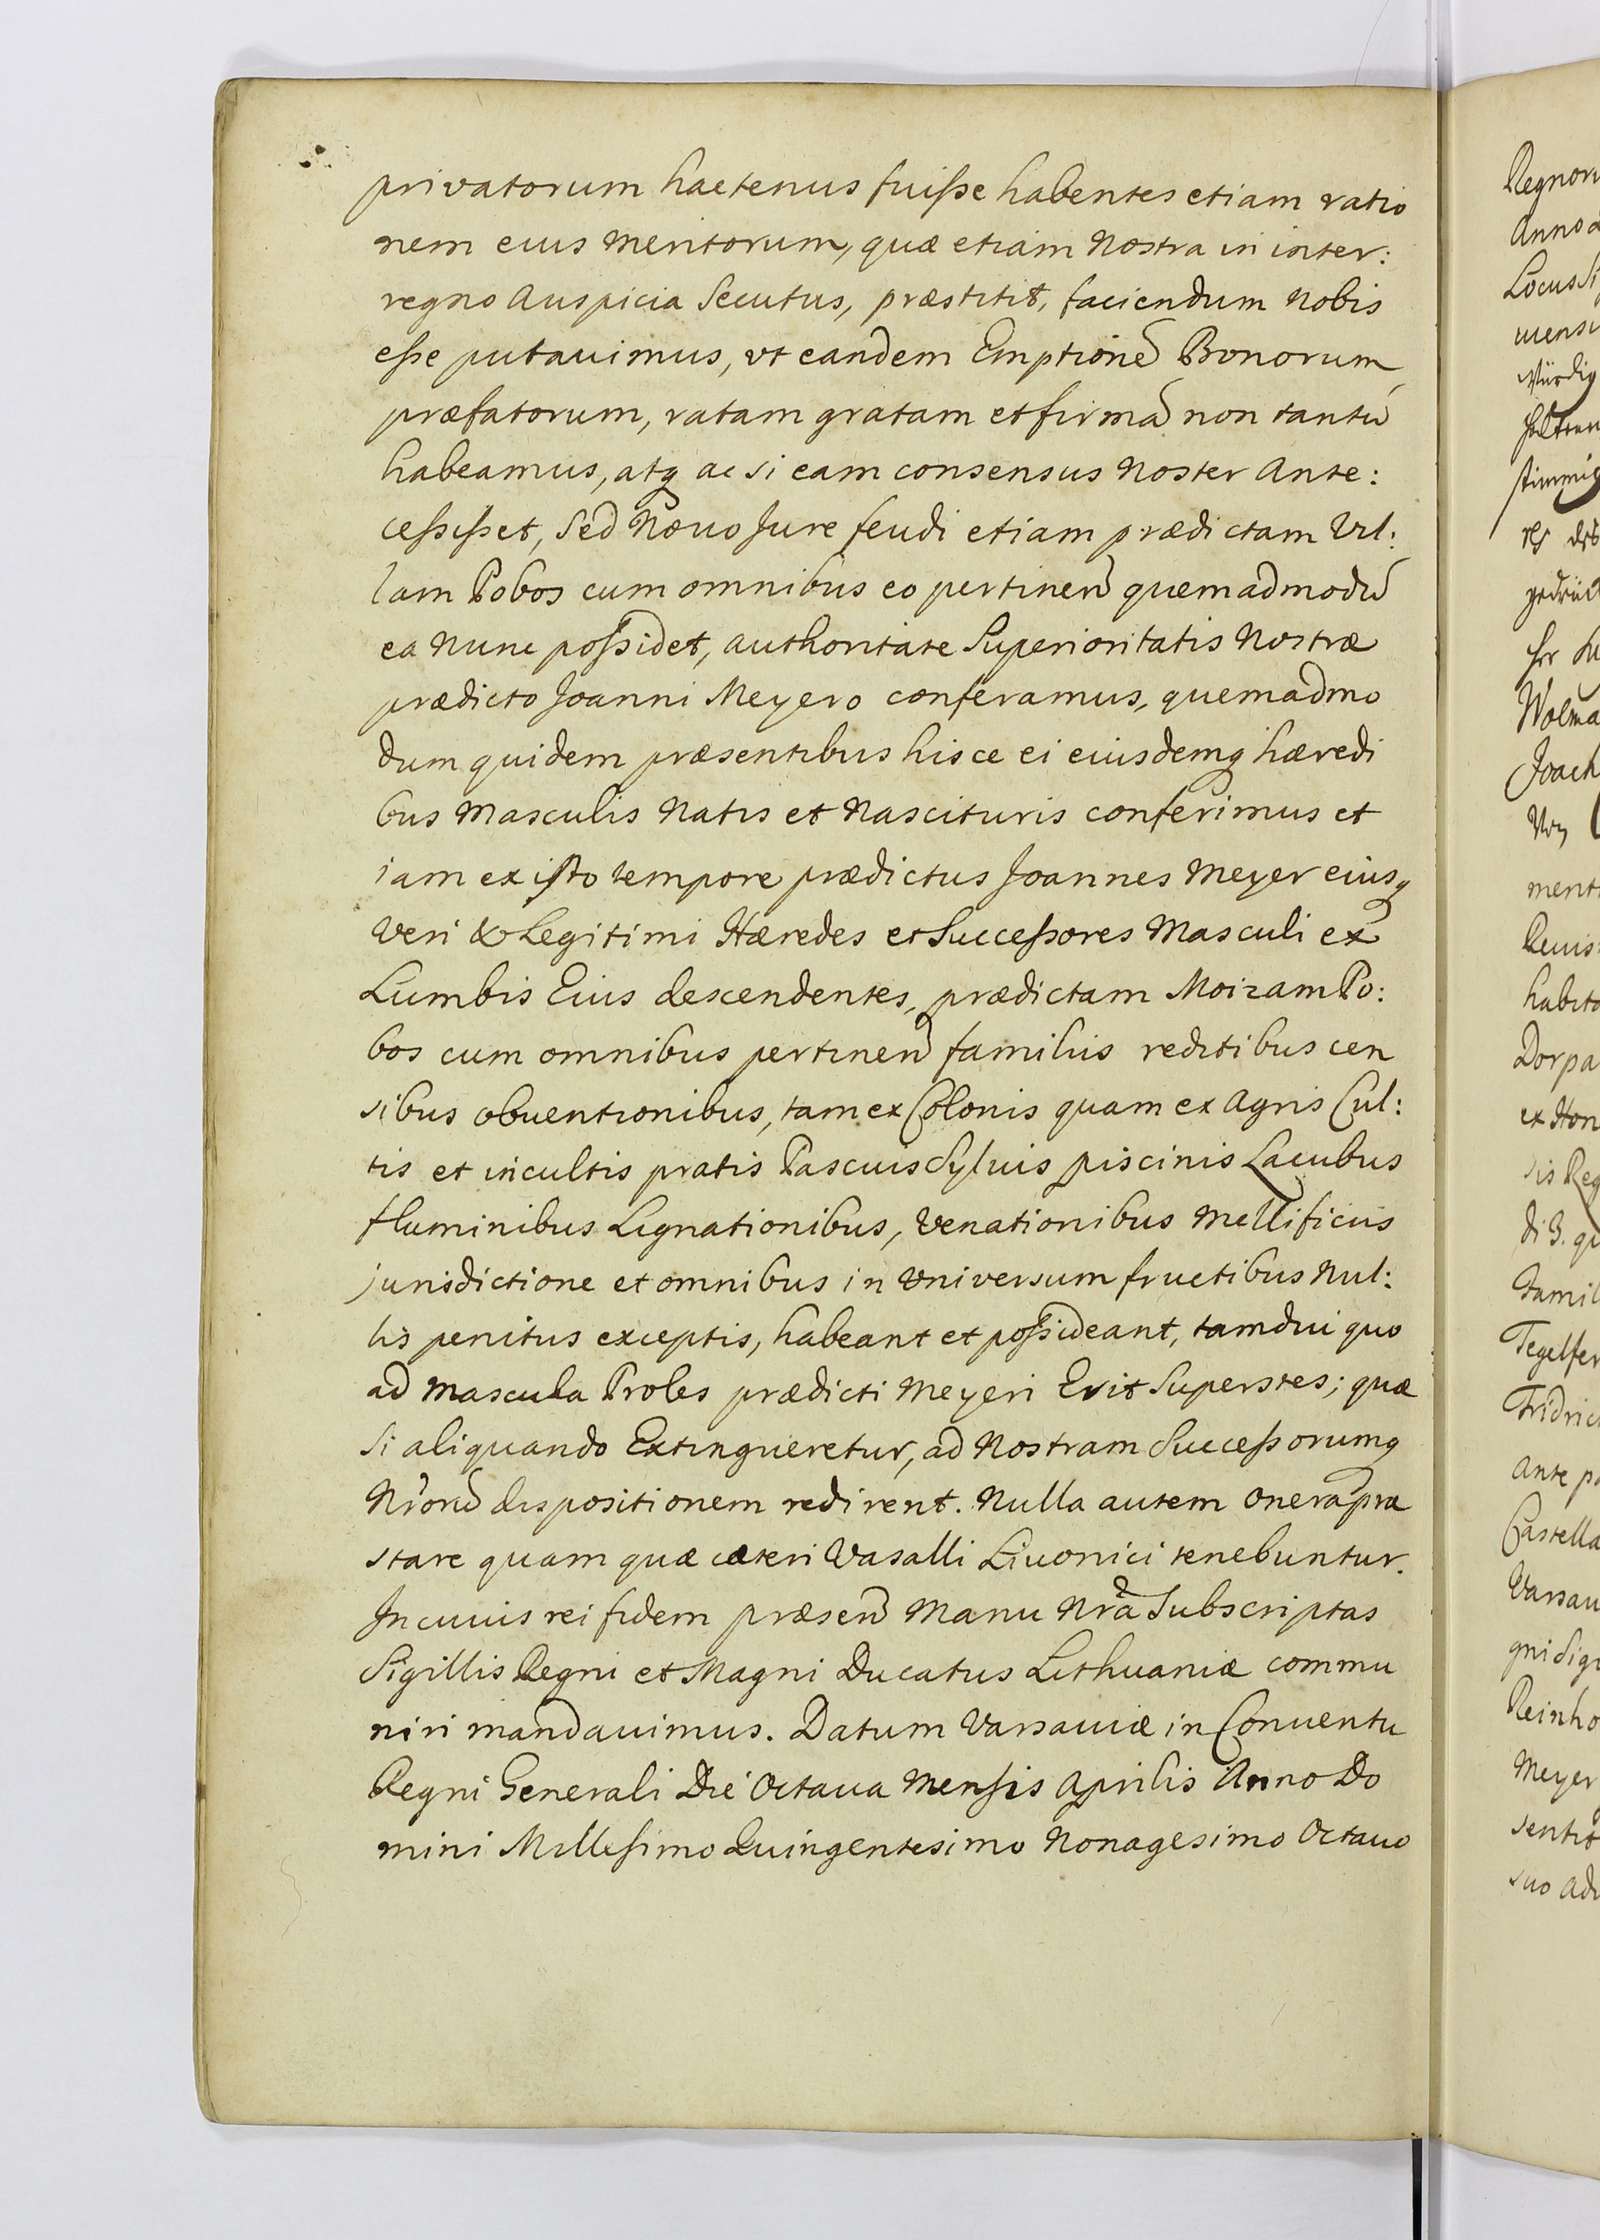 privatorum hactenus fuiße habentes etiam ratio
nem eius meritorum, quæ etiam Nostra in inter:
regno Auspicia Secutus, præstitit, faciendum Nobis
eße putauimus, vt eandem Emptionē Bonorum
præfatorum, ratam gratam et firmā non tantū
habeamus, atq ac si eam consensus Noster Ante:
ceßißet, Sed Nouo Jure feudi etiam prædictam Vil:
lam Pobos cum omnibus eo pertinen̄ quemadmodū
ea Nunc poßidet, authoritate Superioritatis Nostræ
prædicto Joanni Meyero conferamus, quemadmo
dum quidem præsentibus hisce ei eiusdemq hæredi
bus Masculis Natis et Nascituris conferimus et
iam ex isto tempore prædictus Joannes Meyer eiusq
Veri & Legitimi Hæredes et Succeßores Masculi ex
Lumbis Eius descendentes, prædictam Moizam Po:
bos cum omnibus pertinen̄ familiis reditibus cen
sibus obuentionibus, tam ex Colonis quam ex Agris Cul:
tis et incultis pratis Pascuis Syluis piscinis Lacubus
fluminibus Lignationibus, Venationibus Mellificiis
jurisdictione et omnibus in Vniversum fructibus Nul:
lis penitus exceptis, habeant et poßideant, tamdui quo
ad Mascula Proles prædicti Meyeri Erit Superstes; quæ
Si aliquando Extingueretur, ad Nostram Succeßorumq
Nrorū dispositionem redirent. Nulla autem onera præ
stare quam quæ cæteri Vasalli Liuonici tenebuntur.
In cuius rei fidem præsen̄ Manu Nrā Subscriptas
Sigillis Regni et Magni Ducatus Lithuaniæ commu
niri mandauimus. Datum Varsauiæ in Conuentu
Regni Generali Die Octaua Mensis Aprilis Anno Do
mini Millesimo Quingentesimo Nonagesimo Octauo
Regnoru
Anno
Locus Si
würdig
stimmig
Wolma
Joach
Von
ment
Reuis
habito
Dorpa
et Hon
sis Reg
Famil
Tegelfer
Fridric
Ante p
Castella
Varsau
gni Sigi
Reinho
Meyer
sentit
suo ad